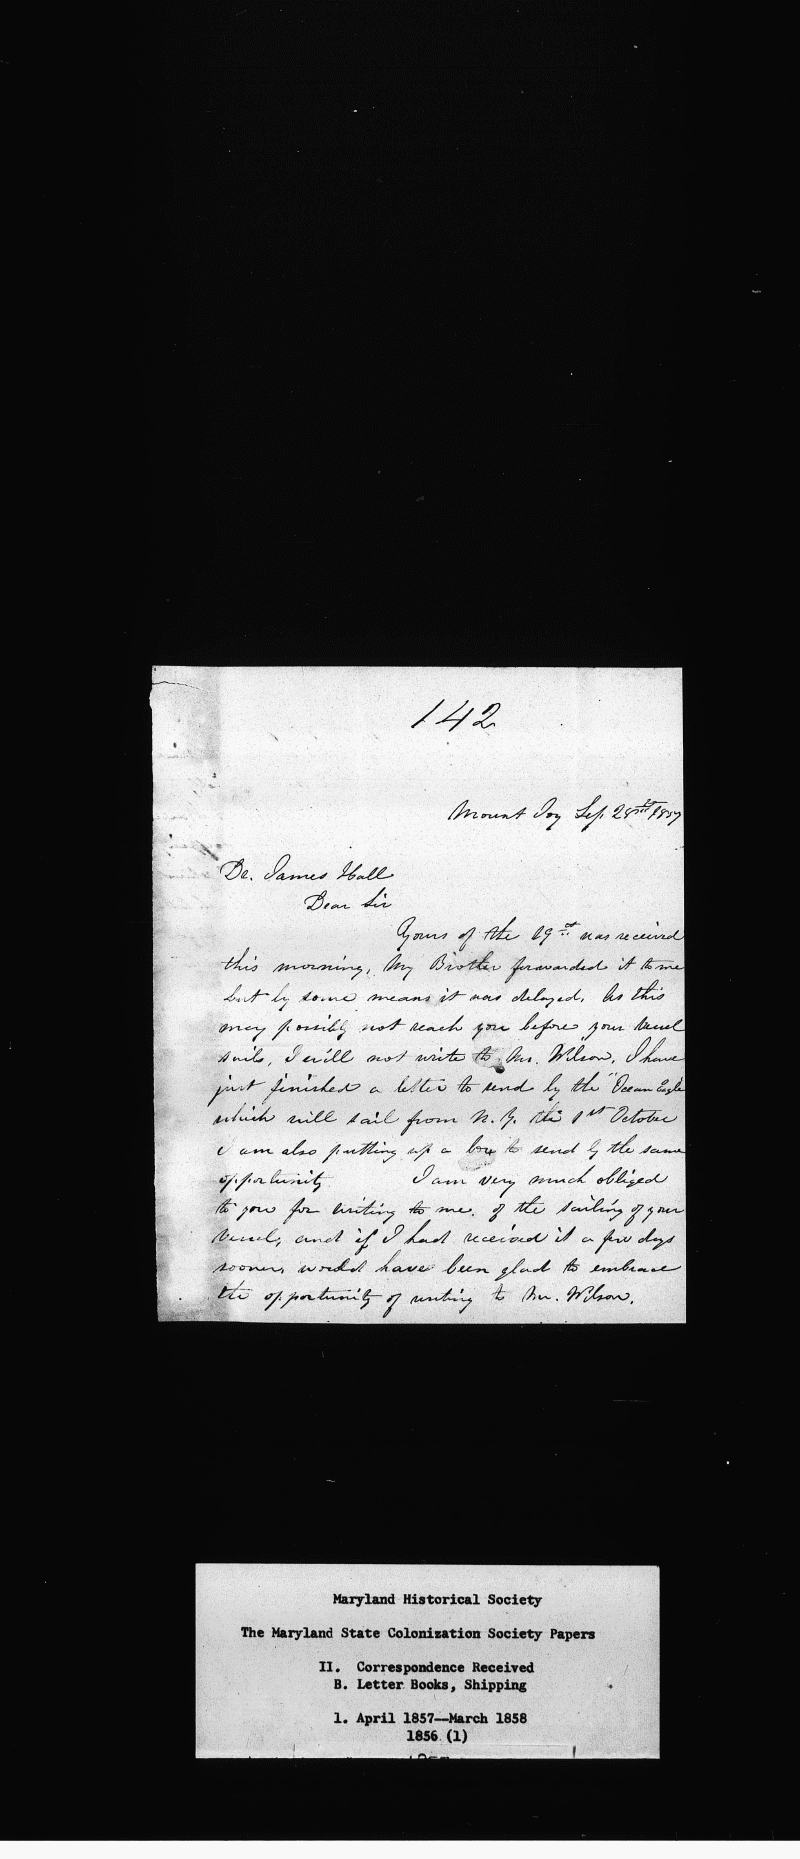 142
Mount Joy Sep 28th 1857
Dr. James Hall
Dear Sir
Yours of the 19th was received
this morning, My Brother forwarded it to me
but by some means it was delayed. As this
may possibly not reach you before your vessel
sails, I will not write to Mr. Wilson, I have
just finished a letter to send by the "Ocean Eagle
which will sail from N. Y. the 1st October
I am also putting up a box to send by the same
opportunity I am very much obliged
to you for writing to me. of the sailing of your
vessel, and if I had received it a few days
sooner, would have been glad to embrace
the opportunity of writing to Mr. Wilson.
Maryland Historical Society
The Maryland State Colonization Society Papers
II. Correspondence Received
B. Letter Books, Shipping
1. April 1857--March 1858
1856 (1)